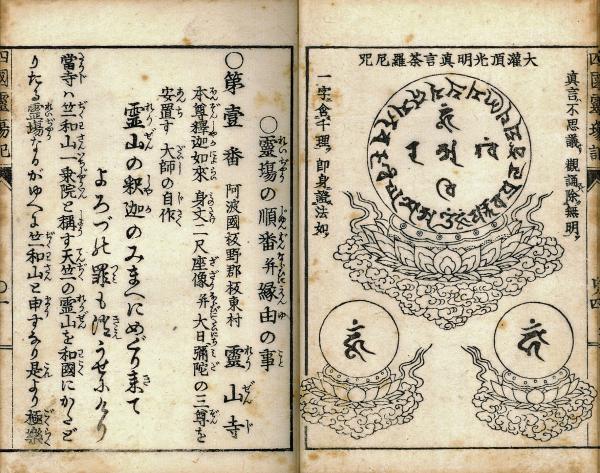 四國靈場記
真言不思議 觀誦除無明
大灌頂光明真言荼羅尼咒
一字含千理 即身證法如
〇靈場の順番并縁由の事
〇第壹番 阿波國板野郡板東村 靈山寺
本尊釋迦如來 身丈二尺座像 并大日彌陀の三尊を
安置す 大師の自作
霊山の釈迦のみまへにめぐり来て
よろづの罪も消うせにけり
當寺ハ竺和山一乗院と稱す天竺の霊山を和國にかたど
りたる霊場なるがゆへよ竺和山と申すなり是より極樂
四國靈場記
〇一